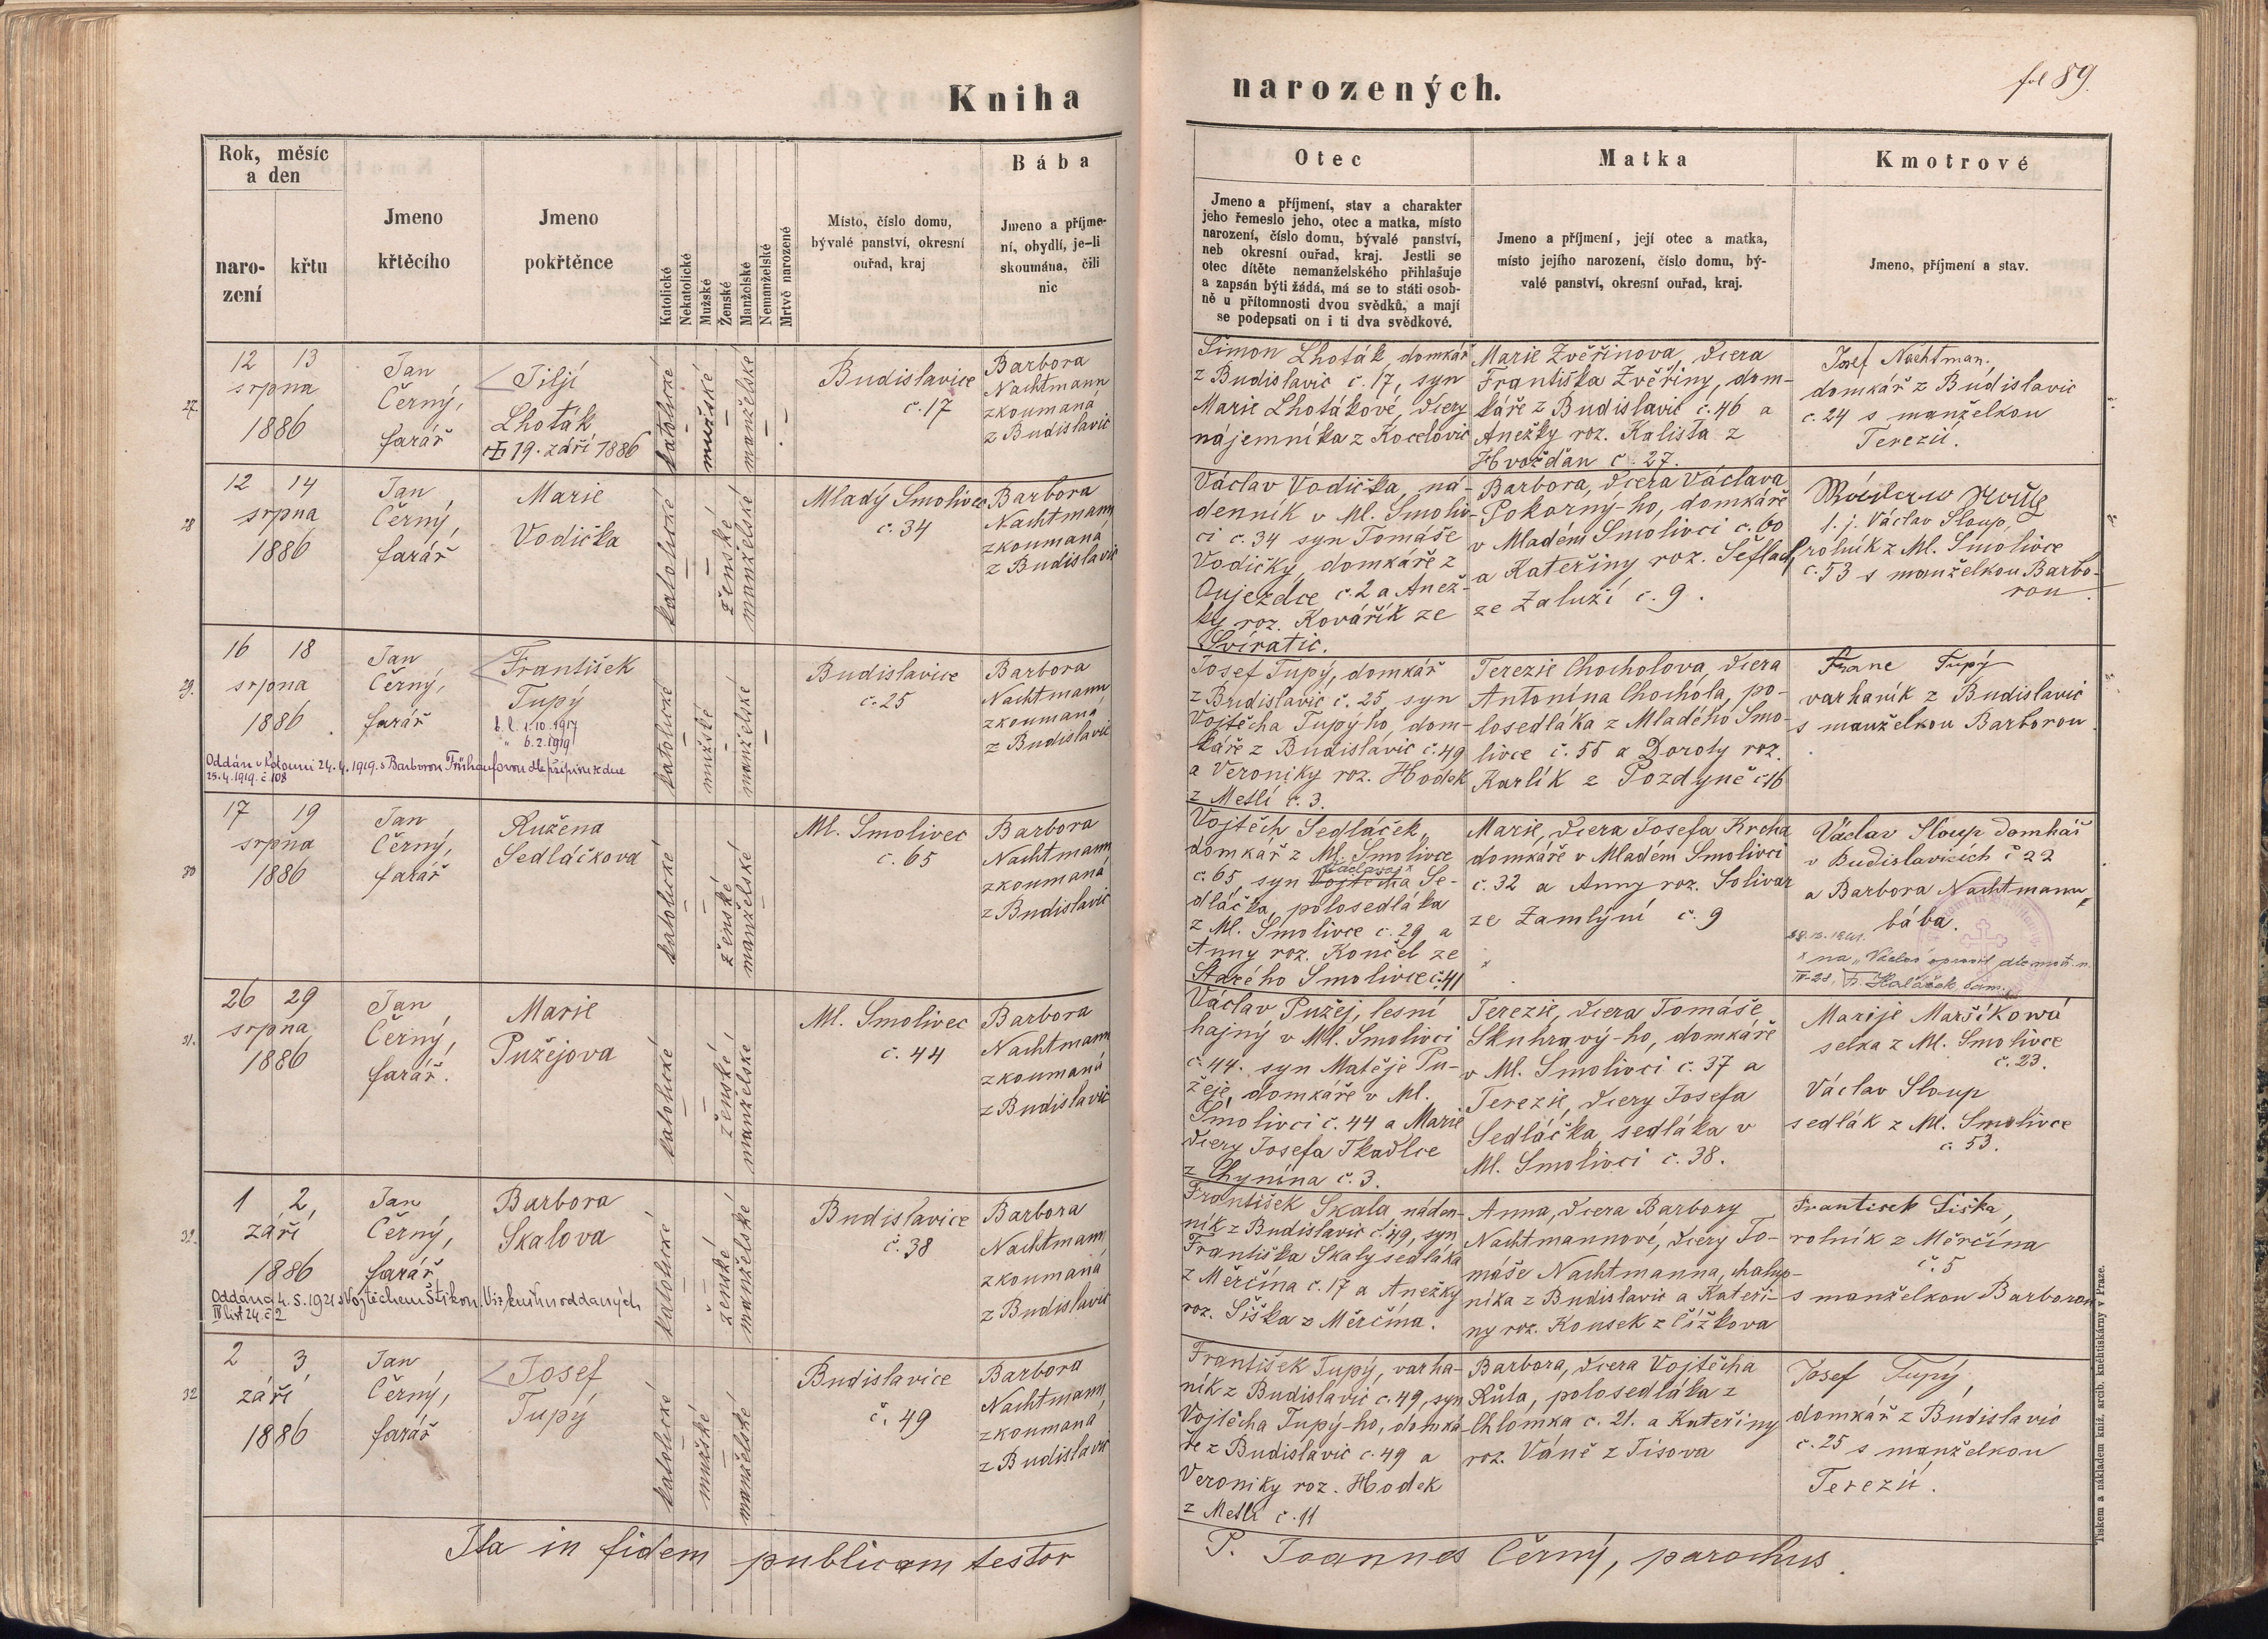 Kniha
narozených.
fol 89.
Rok, měsíc
a den
naro-
zení
křtu
Jmeno
křtěcího
Jmeno
pokřtěnce
Katolické
Nekatolické
Mužské
Ženské
Manželské
Nemanželské
Mrtvě narozené
Místo, číslo domu,
bývalé panství, okresní
ouřad, kraj
Bába
Jmeno a příjme-
ní, obydlí, je-li
skoumána, čili
nic
Otec
Jmeno a příjmení, stav a charakter
jeho řemeslo jeho, otec a matka, místo
narození, číslo domu, bývalé panství,
neb okresní ouřad, kraj. Jestli se
otec dítěte nemanželského přihlašuje
a zapsán býti žádá, má se to státi osob-
ně u přítomnosti dvou svědků, a mají
se podepsati on i ti dva svědkové.
Matka
Jmeno a příjmení, její otec a matka,
místo jejího narození, číslo domu, bý-
valé panství, okresní ouřad, kraj.
Kmotrové
Jmeno, příjmení a stav.
27.
12 13
srpna
1886
Jan
Černý,
farář
Jiljí
Lhoták
19. září 1886
katolické
mužské
manželské
Budislavice
č. 17
Barbora
Nachtmann
zkoumaná
z Budislavic
Šimon Lhoták, domkář
z Budislavic č. 17, syn
Marie Lhotákové, dcery
nájemníka z Kocelovic
Marie Zvěřinova, dcera
Františka Zvěřiny, dom-
káře z Budislavic č. 46 a
Anežky roz. Kalista z
Hvožďan č. 27.
Josef Nachtman,
domkář z Budislavic
č. 24 s manželkou
Terezií.
28
12 14
srpna
1886
Jan
Černý,
farář
Marie
Vodička
katolické
ženské
manželské
Mladý Smolivec
č. 34
Barbora
Nachtmann
zkoumaná
z Budislavic
Václav Vodička, ná-
denník v Ml. Smoliv-
ci č. 34 syn Tomáše
Vodičky, domkáře z
Oujezdce č. 2 a Anež-
ky roz. Kovářík ze
Svíratic.
Barbora, dcera Václava
Pokorný-ho, domkáře
v Mladém Smolivci č. 60
a Kateřiny roz. Šefladr
ze Zaluží č. 9.
t. j. Václav Sloup,
rolník z Ml. Smolivce
č. 53 s manželkou Barbo-
rou.
29.
16 18
srpna
1886
Jan
Černý,
farář
František
Tupý
b. l. 1.10.1917
" 6.2.1919
Oddán v Plzeni 24.4.1919. s Barborou Frühaufovou dle přípisu ze dne
25.4.1919. č. 108
katolické
mužské
manželské
Budislavice
č. 25
Barbora
Nachtmann
zkoumaná
z Budislavic
Josef Tupý, domkář
z Budislavic č. 25, syn
Vojtěcha Tupý-ho, dom-
káře z Budislavic č. 49
a Veroniky roz. Hodek
z Metlí č. 3.
Terezie Chocholova, dcera
Antonína Chochola, po-
losedláka z Mladého Smo-
livce č. 55 a Doroty roz.
Karlík z Pozdyně č. 16
Franc Tupý
varhaník z Budislavic
s manželkou Barborou
30
17 19
srpna
1886
Jan
Černý,
farář
Ružena
Sedláčkova
katolické
ženské
manželské
Ml. Smolivec
č. 65
Barbora
Nachtmann
zkoumaná
z Budislavic
Vojtěch Sedláček,
domkář z Ml. Smolivce
Václava x
č. 65 syn Vojtěcha Se-
dláčka, polosedláka
z Ml. Smolivce č. 29 a
Anny roz. Končel ze
Starého Smolivce č. 41
Marie, dcera Josefa Krcha
domkáře v Mladém Smolivci
č. 32 a Anny roz. Solivar
ze Zamlýní č. 9
Václav Sloup domkář
v Budislavicích č 22
a Barbora Nachtmann,
bába.
x na "Václav opravil dle matr. n.
31.
26 29
srpna
1886
Jan
Černý,
farář.
Marie
Pužejova
katolické
ženské
manželské
Ml. Smolivec
č. 44
Barbora
Nachtmann
zkoumaná
z Budislavic
Václav Pužej, lesní
hajný v Ml. Smolivci
č. 44. syn Matěje Pu-
žeje, domkáře v Ml.
Smolivci č. 44 a Marie
dcery Josefa Tkadlce
z Chynína č. 3.
Terezie, dcera Tomáše
Skuhravý-ho, domkáře
v Ml. Smolivci č. 37 a
Terezie, dcery Josefa
Sedláčka, sedláka v
Ml. Smolivci č. 38.
Marije Maršíkowá
selka z Ml. Smolivce
č. 23.
Václav Sloup
sedlák z Ml. Smolivce
č. 53.
32.
1 2,
září
1886
Jan
Černý,
farář
Barbora
Skalova
Oddána 4. 5. 1921 s Vojtěchem Štikou. Viz knihu oddaných
IV list 24. č 2
katolické
ženské
manželské
Budislavice
č. 38
Barbora
Nachtmann
zkoumaná
z Budislavic
František Skala, náden-
ník z Budislavic č. 49, syn
Františka Skaly sedláka
z Měrčína č. 17 a Anežky
roz. Šiška z Měrčína.
Anna, dcera Barbory
Nachtmannové, dcery To-
máše Nachtmanna, chalup-
níka z Budislavic a Kateři-
ny roz. Kousek z Čížkova
Frantisek Šiška,
rolník z Měrčína
č. 5
s manželkou Barborou
32
2 3
září
1886
Jan
Černý,
farář
Josef
Tupý
katolické
mužské
manželské
Budislavice
č. 49
Barbora
Nachtmann
zkoumaná
z Budislavic
František Tupý, varha-
ník z Budislavic č. 49, syn
Vojtěcha Tupý-ho, domká-
ře z Budislavic č. 49 a
Veroniky roz. Hodek
z Metlí č. 11
Barbora, dcera Vojtěcha
Růta, polosedláka z
Chlomka č. 21. a Kateřiny
roz. Váně z Tisova
Josef Tupý,
domkář z Budislavic
č. 25 s manželkou
Terezií.
Ita in fidem publicam testor
P. Joannes Černý, parochus.
Tiskem a nákladem kníž. arcib. knihtiskárny v Praze.